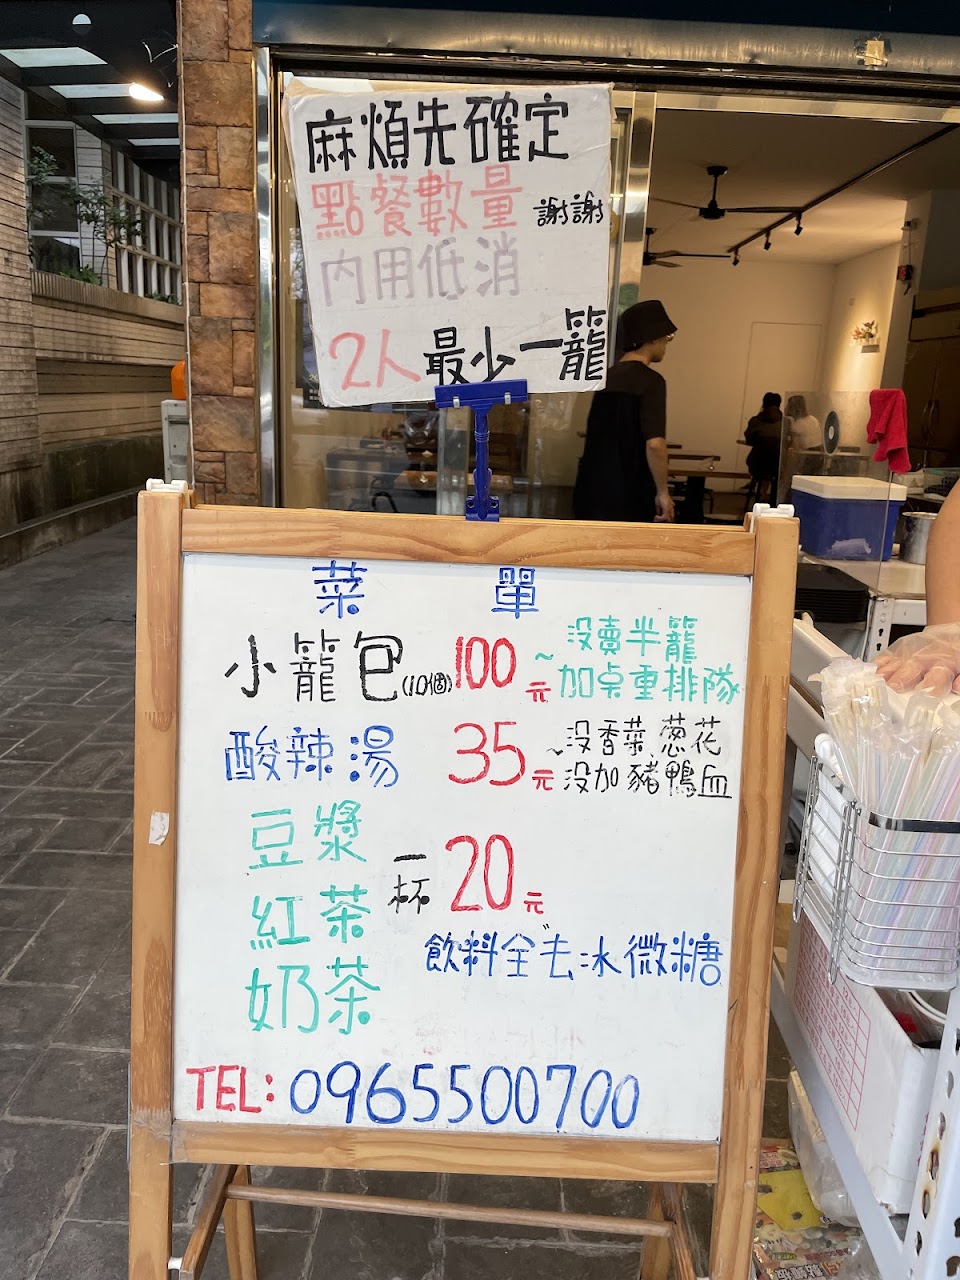 麻煩先確定
點餐數量 謝謝
內用低消
2人最少一籠
菜單
小籠包(10個)100元~沒賣半籠
加桌重排隊
酸辣湯 35元~沒香菜、蔥花
沒加豬鴨血
豆漿
紅茶 一杯20元
奶茶
飲料全去冰微糖
TEL:0965500700